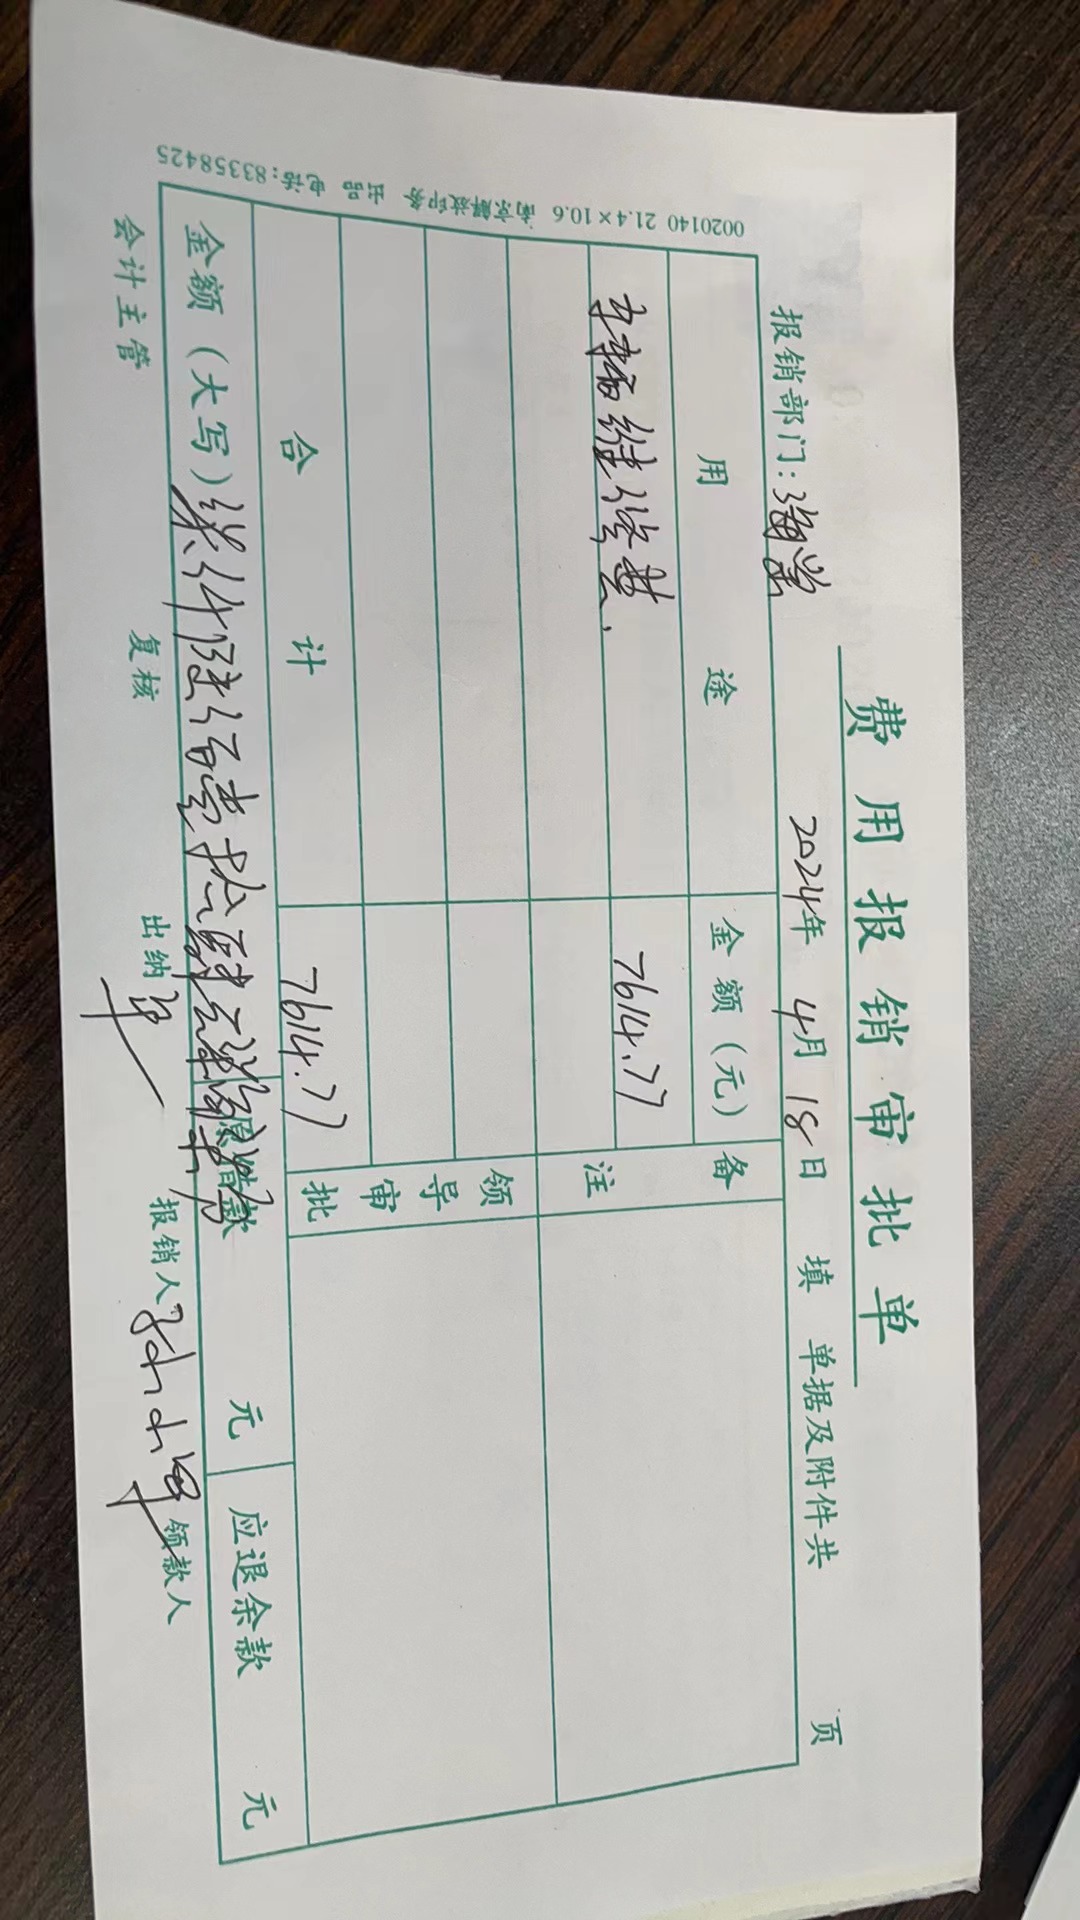 费用报销审批单
报销部门：海棠 2024年 4月 18日 填 单据及附件共 页
用途 金额（元） 备注
车辆维修费 7614.77
领导审批
合计 7614.77
金额（大写）柒仟陆佰壹拾肆元柒角柒分 原借款 元 应退余款 元
会计主管 复核 出纳 报销人 领款人
0020140 21.4×10.6 南京解放印务 出品 电话：83358425